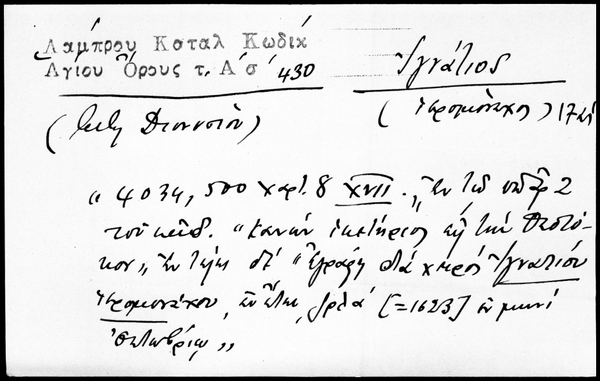 Λάμπρου Καταλ Κωδίκ
Ἁγίου Ὄρους τ. Α΄ σ΄ 430
Ἰγνάτιος
(Ἱερομόναχος)
(Διονυσίου)
"4034, 500 χαρτ. 8 XVII. "Ἐν τῷ ὑπ' ἀρ 2
τοῦ κώδ. "Κανὼν ἱκετήριος εἰς τὴν Θεοτό-
κον" Ἐν τέλει δέ "Ἐγράφη διὰ χειρὸς Ἰγνατίου
Ἱερομονάχου, ἐν ἔτει ͵ζρλα΄ [=1623] ἐν μηνὶ
Ὀκτωβρίῳ"